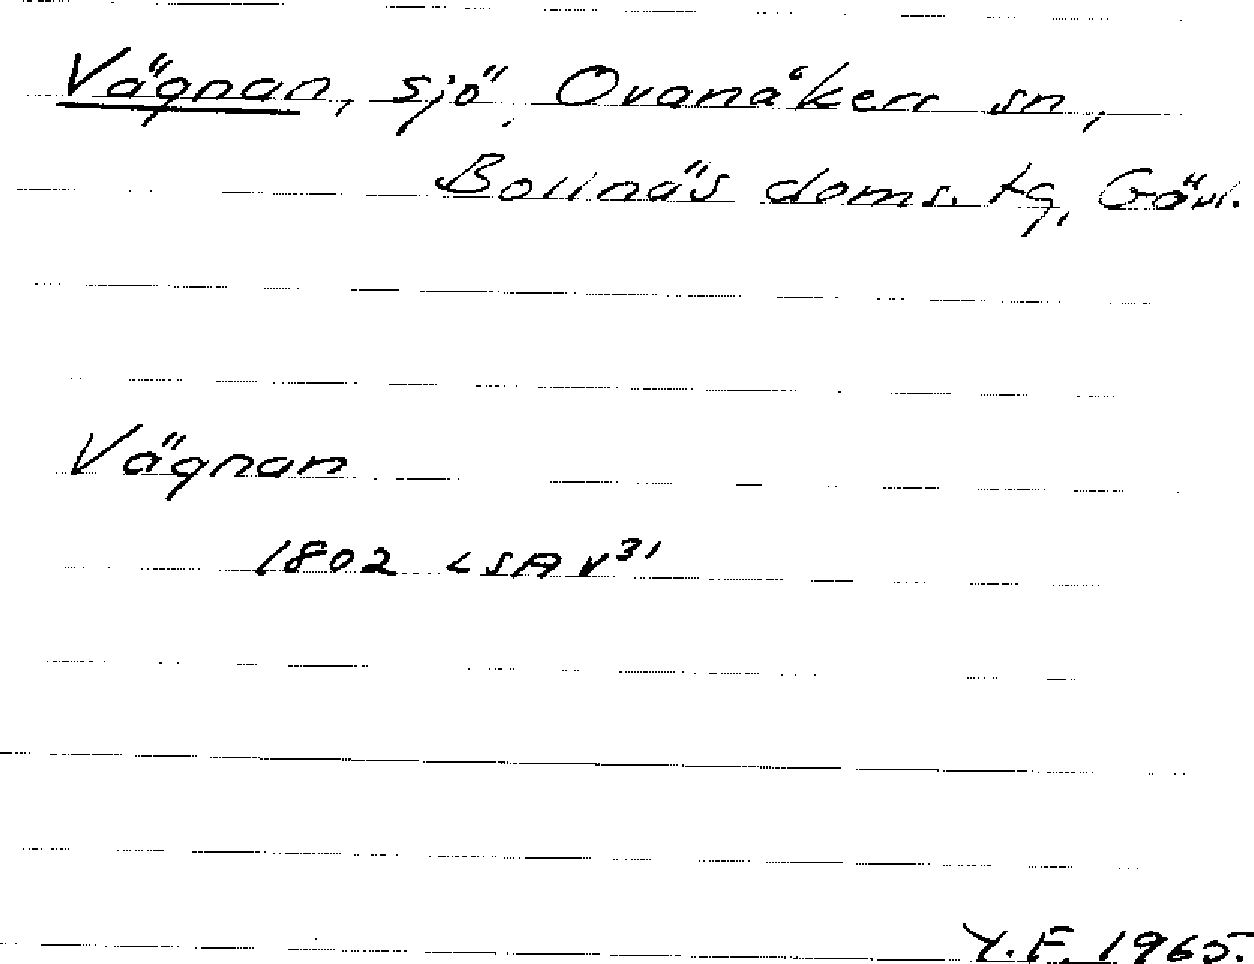 Vägnan, sjö, Ovanåkers sn,
Bollnäs doms. tg, Gävl.
Vägnan
1802 LSA V31
Y.F. 1965.